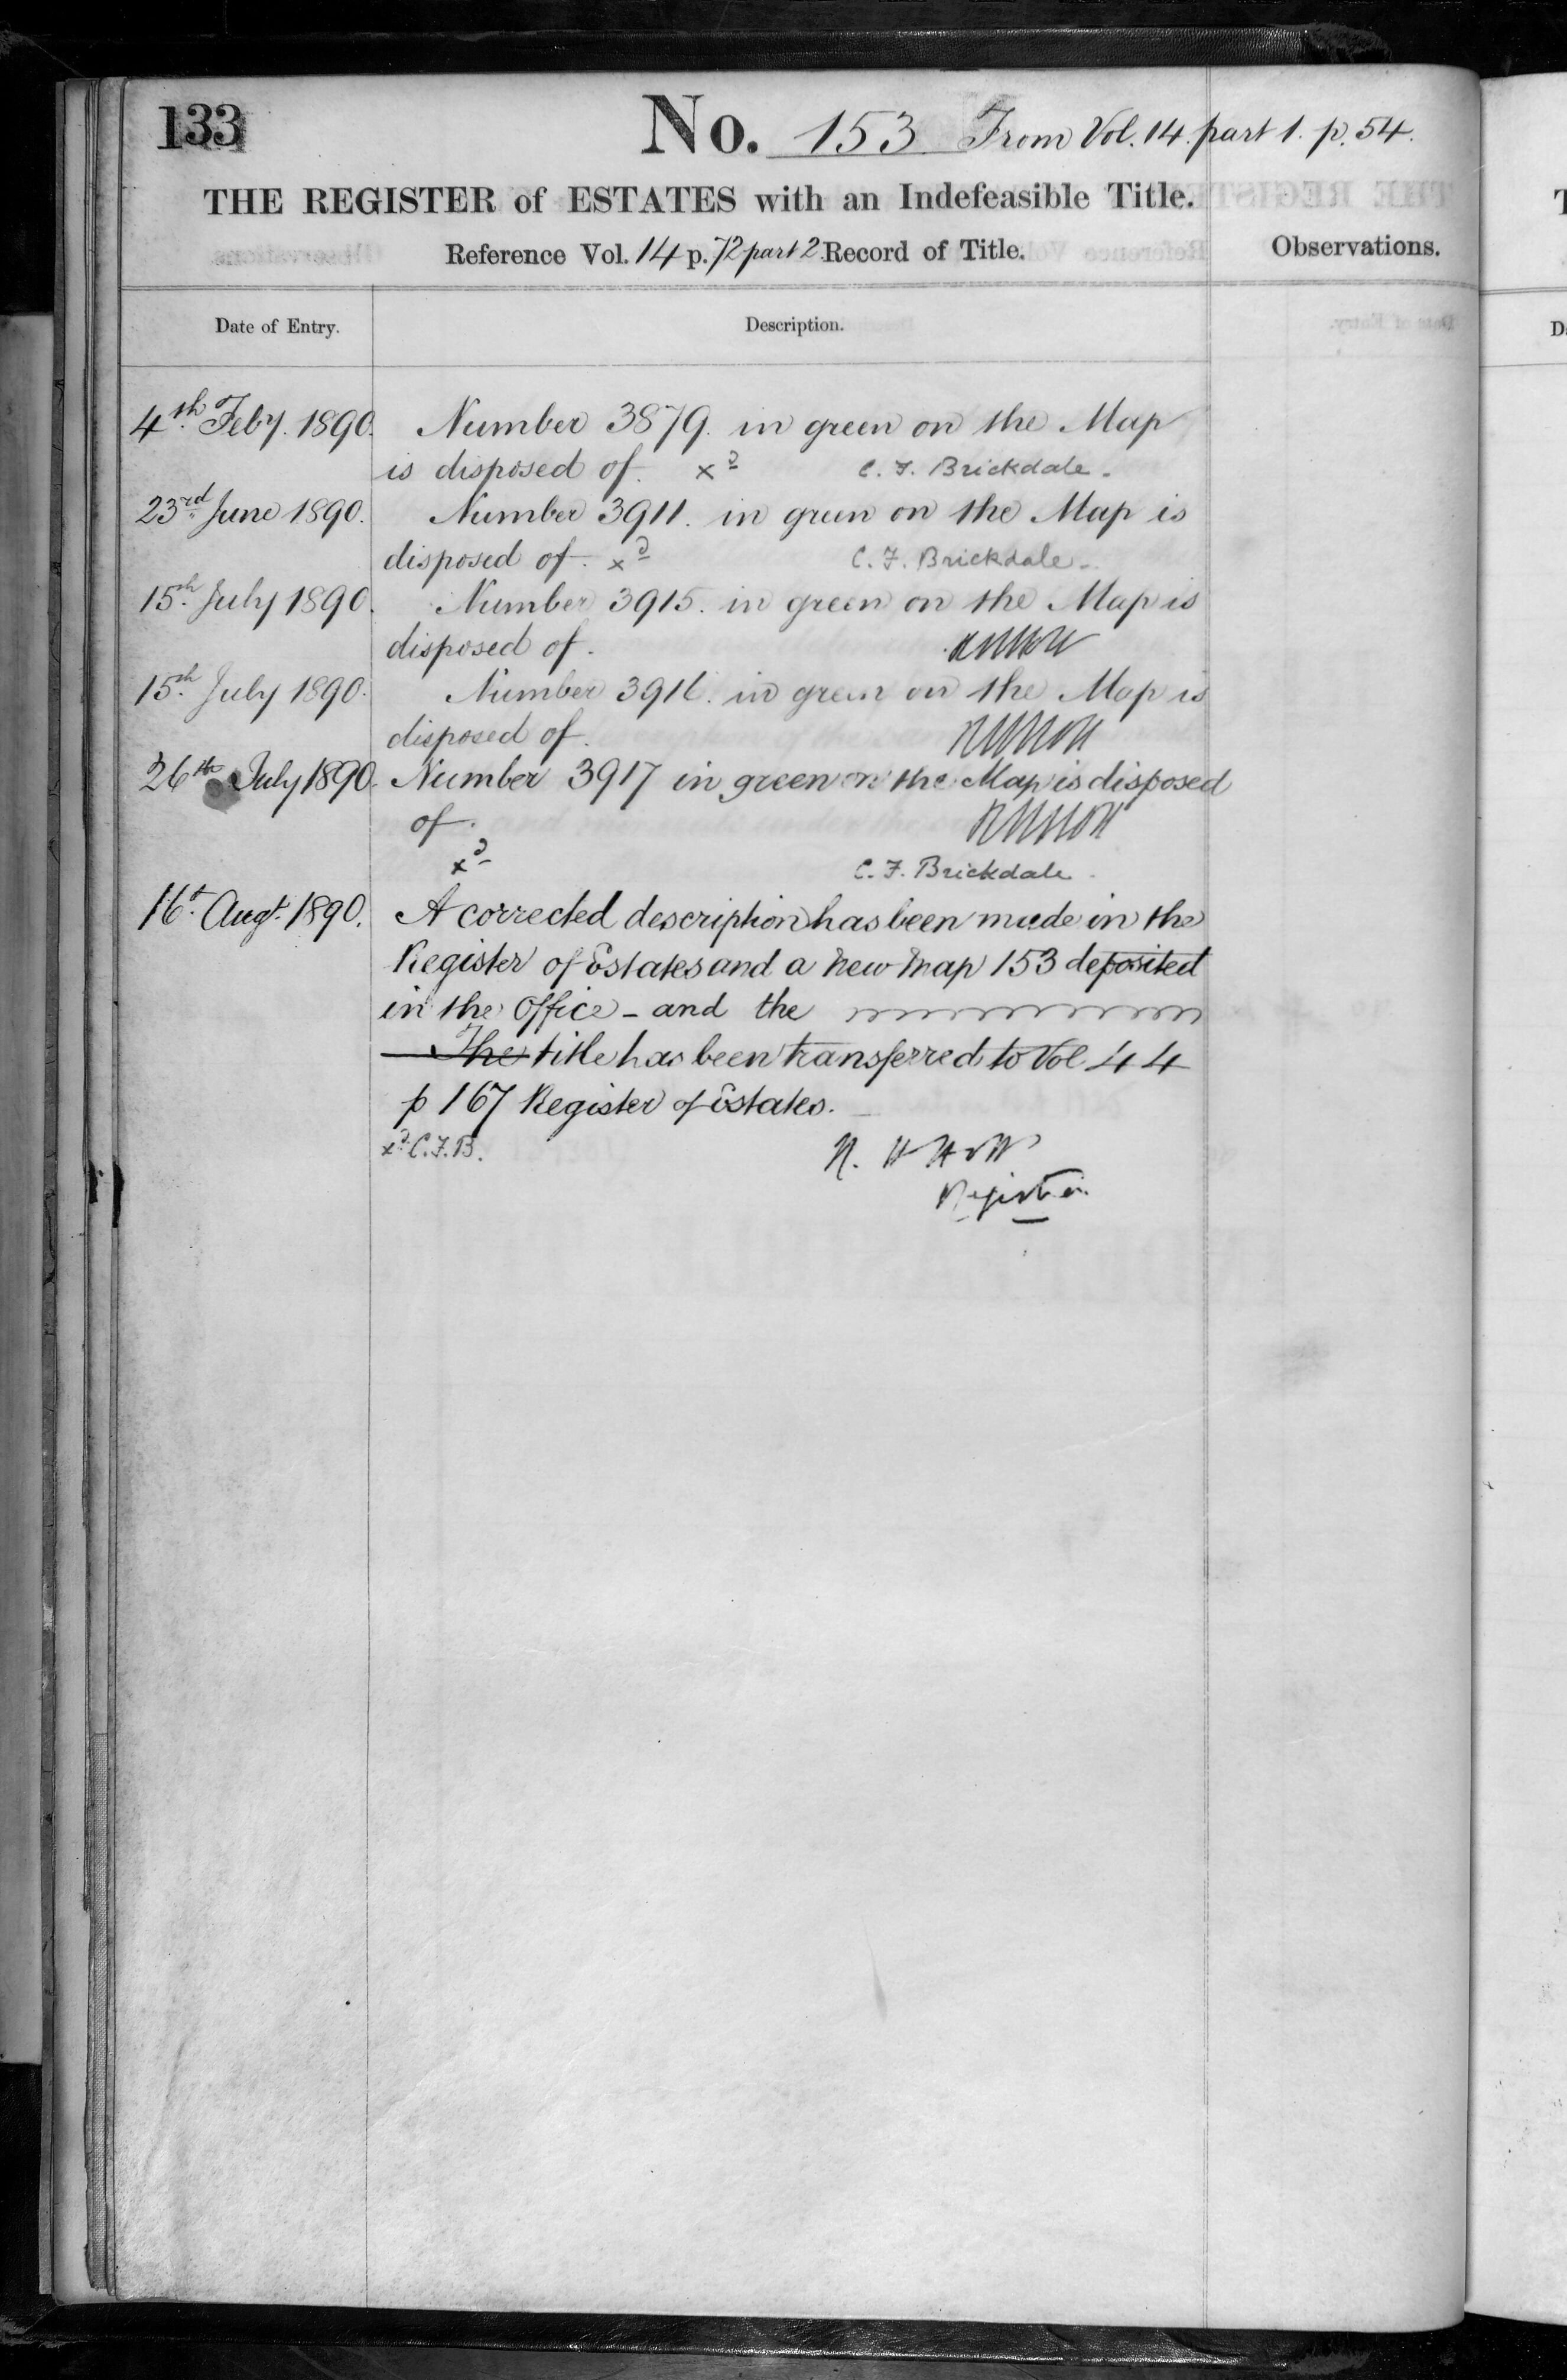 133
No. 153 From Vol. 14. part 1. p. 54.
THE REGISTER of ESTATES with an Indefeasible Title.
Reference Vol. 14 p. 72 part 2 Record of Title.
Observations.
Date of Entry.
Description.
4th Feby. 1890. Number 3879. in green on the Map
is disposed of. xd C. F. Brickdale.
23rd June 1890. Number 3911. in green on the Map is
disposed of. xd C. F. Brickdale.
15th July 1890. Number 3915. in green on the Map is
disposed of.
15th July 1890. Number 3916. in green on the Map is
disposed of.
26th July 1890. Number 3917 in green on the Map is disposed
of.
xd C. F. Brickdale.
16t. Augt. 1890. A corrected description has been made in the
Register of Estates and a new map 153 deposited
in the Office - and the
The title has been transferred to Vol 44
p 167 Register of Estates.
xd. C. F. B.
Registrar.